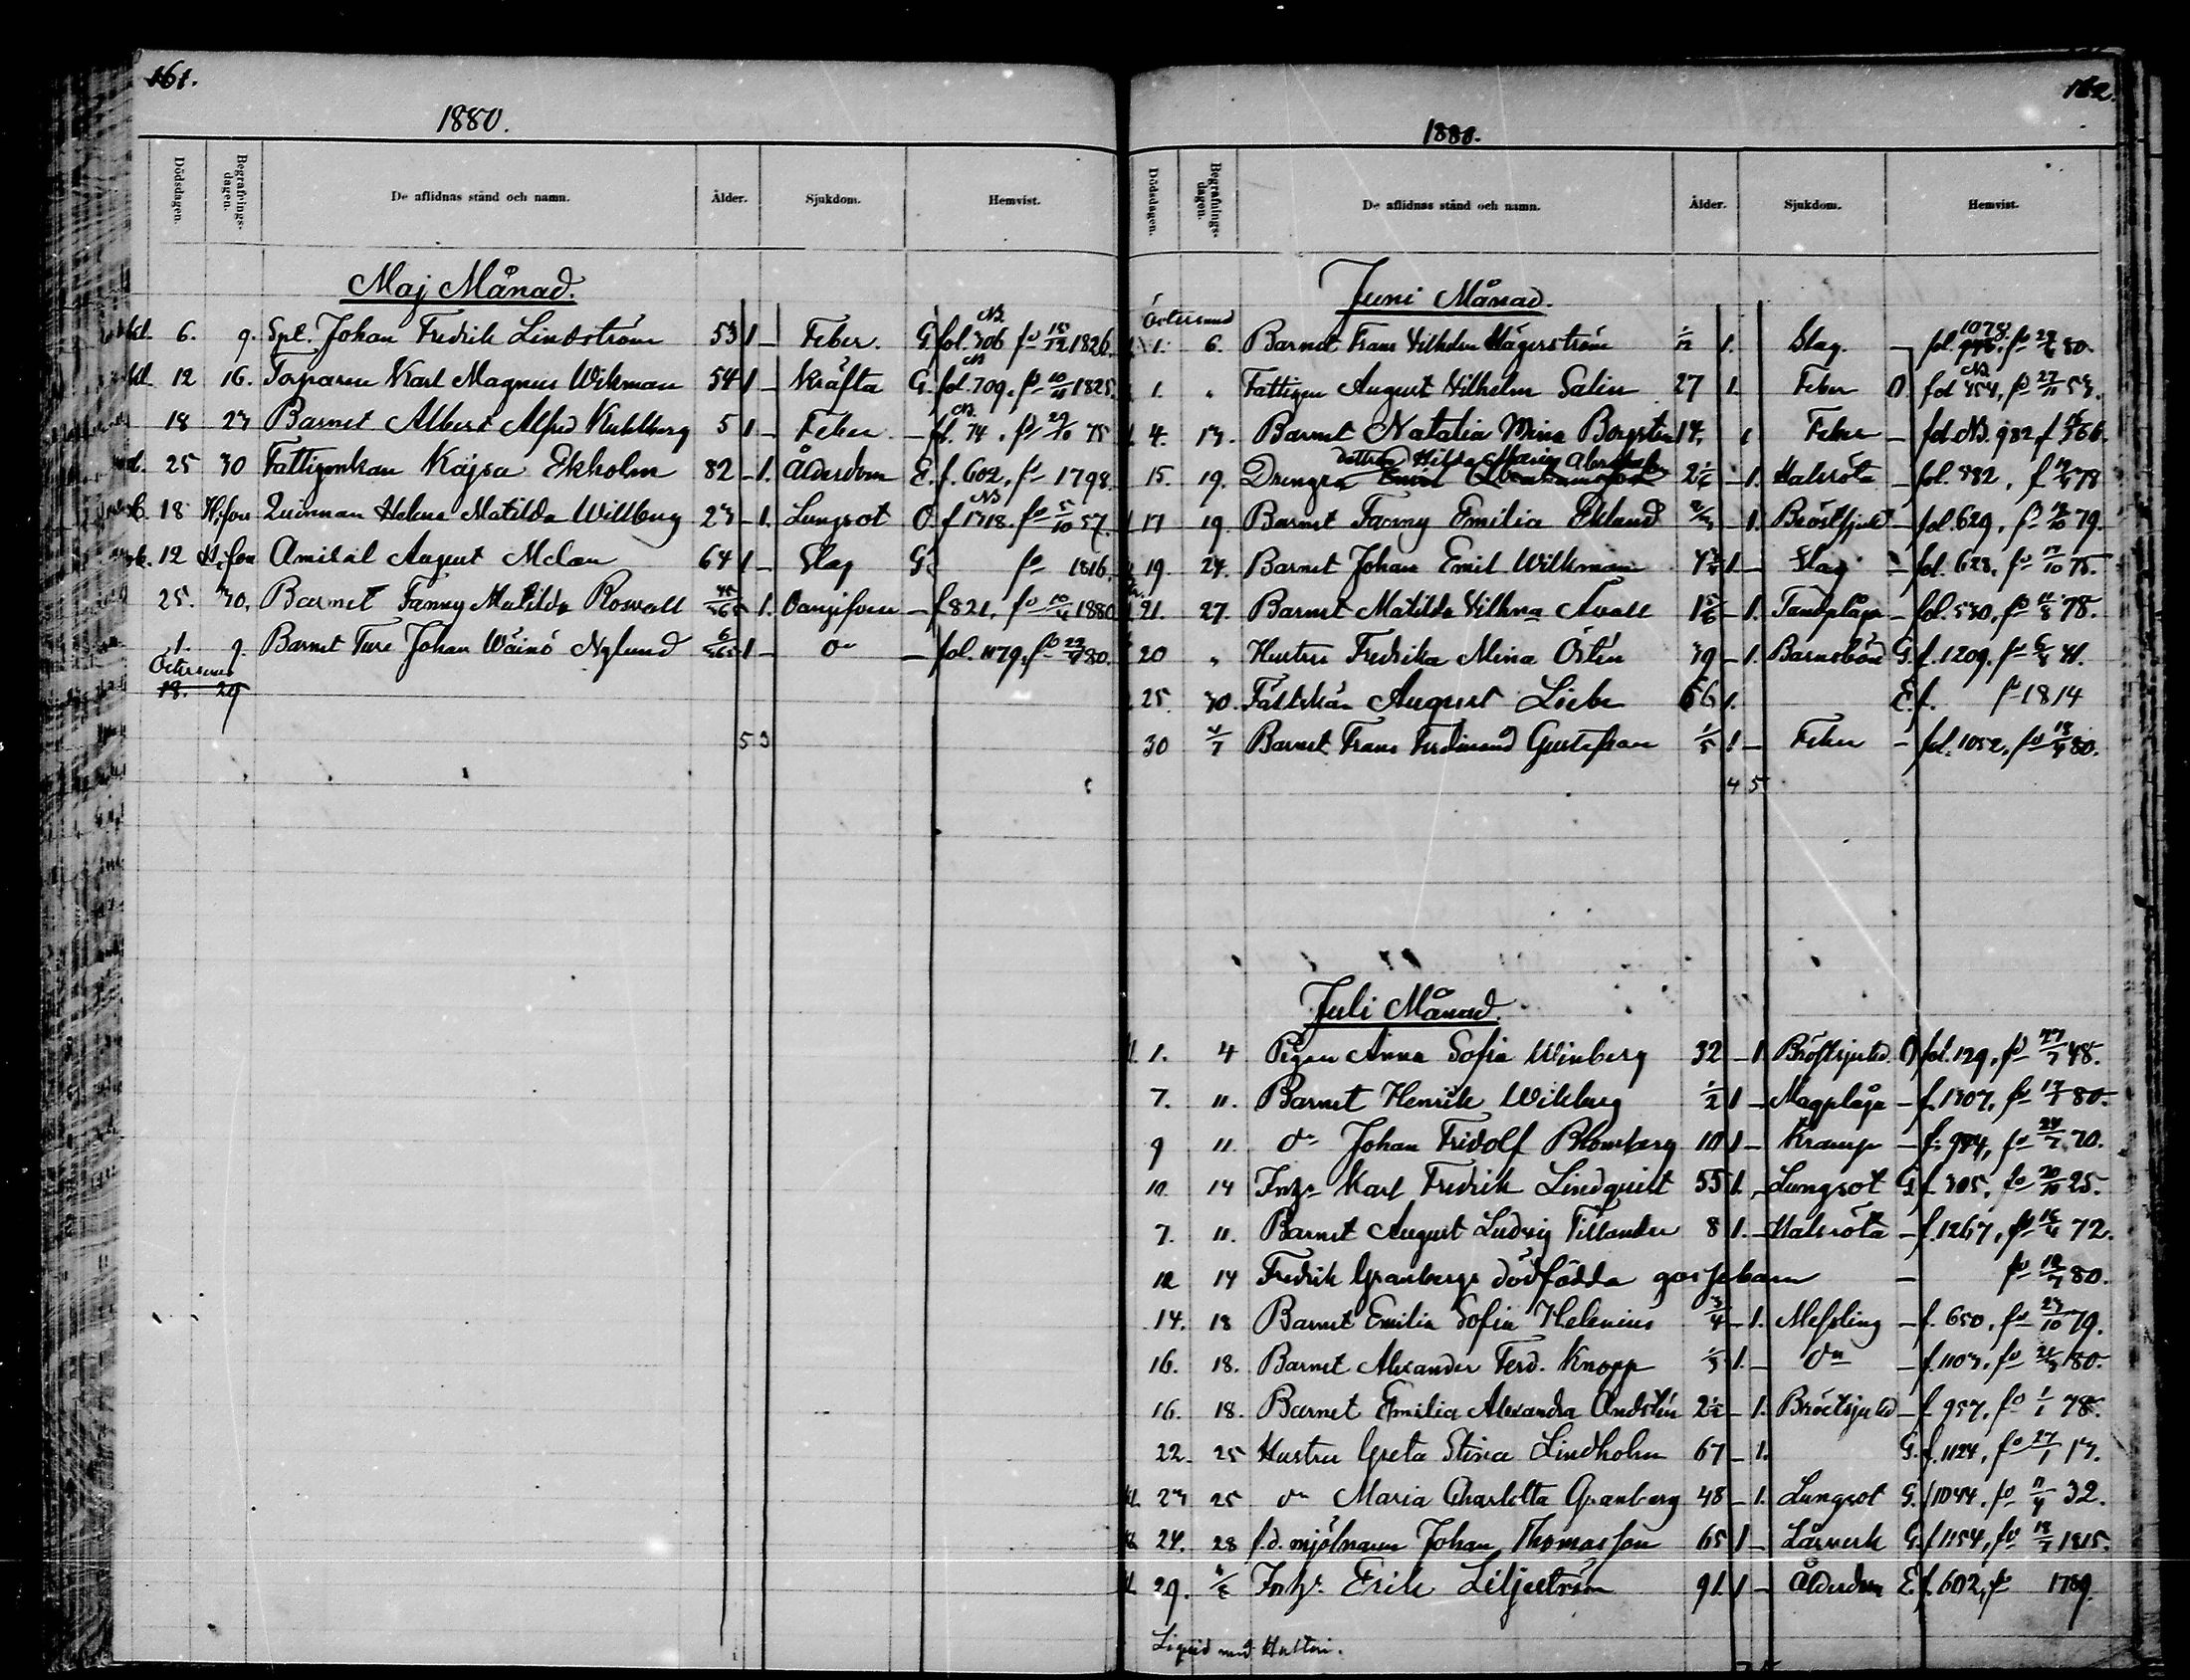 161.
1880.
Dödsdagen. Begrafnings-dagen. De aflidnas stånd och namn. Ålder. Sjukdom. Hemvist.
Maj Månad.
6. 9. Spl. Johan Fredrik Lindström 53 1 – Feber. G. fol. 306 fö 1826.
12 16. Torparen Karl Magnus Wikman 54 1 – Kräfta G. fol. 709. fö 1825.
18 23 Barnet Albert Alfred 5 1 – Feber – fol. 74. fö 29/10 75
25 30 Fattigenkan Kajsa Ekholm 82 – 1. Ålderdom E. f. 602. fö 1798.
18 H:fors Qvinnan Helena Matilda Willberg 23 – 1. Lungsot O. f 1318. fö 5/10 57.
12 H:fors Amiral August 64 1 – Slag G. fö 1816.
25. 30. Barnet Fanny Matilda Roswall – 1. – f 821. fö 1880
1. 9. Barnet Ture Johan Wäinö Nylund 1 – do – fol. 1079. fö 80.
Östersund
18. 29
5 3
162.
1880.
Dödsdagen. Begrafnings-dagen. De aflidnas stånd och namn. Ålder. Sjukdom. Hemvist.
Juni Månad.
Östersund
1. 6. Barnet Frans Vilhelm Hägerström 1/12 1. Slag. – fol. 1078. fö 80.
1. " Fattigen August Vilhelm Salin 27 1. Feber O. fol 454. fö 27/11 53.
4. 13. Barnet Natalia Mina 14. 1 Feber – fol. NB. 982 f 66.
dottren Hilda Maria
15. 19. Drengen 2 1/6 – 1. Halsröta – fol. 382, f 78
17 19. Barnet Fanny Emilia Eklund – 1. Bröstsjukd – fol. 629. fö 79.
19. 24. Barnet Johan Emil Wilkman 1 – Slag – fol. 628. fö 17/10 75.
21. 27. Barnet Matilda Vilhma 1 5/6 – 1. Tandplåga – fol. 530. fö 11/8 78.
20 " Hustru Fredrika Mina Östén 39 – 1. Barnsbörd G. f. 1209. fö 6/3 41.
25. 30. Fältskär August Liebe 66 1. E. f. fö 1814
30 4/7 Barnet Frans Ferdinand Gustafsson 1/5 1 – Feber – fol. 1052. fö 18/4 80.
4 5
Juli Månad.
1. 4 Pigan Anna Sofia Winberg 32 – 1 Bröstsjukd. O fol. 129. fö 48.
7. 11. Barnet Henrik Wikberg 1/2 1 – Magplåga – f. 1307. fö 80.
9 11. do Johan Fridolf Blomberg 10 1 – Kramp – f. 994, fö 24/7 70.
10. 14 Inhs Karl Fredrik Lindquist 55 1. – Lungsot G. f 305. fö 20/10 25.
7. 11. Barnet August Ludvig Tillander 8 1. – Halsröta – f. 1267. fö 72.
12 14 Fredrik Granbergs dödfödda gossebarn – fö 12/7 80.
14. 18 Barnet Emilia Sofia Helenius 3/4 – 1. Messling – f. 650. fö 23/10 79.
16. 18. Barnet Alexander Ferd. Knopp 1/3 1. – do – f. 1103. fö 80.
16. 18. Barnet Emilia Alexandra Andstén 2 1/2 – 1. Bröstsjukd – f. 957. fö 1/1 78.
22. 25 Hustru Greta Stina Lindholm 67 – 1. G. f. 1124. fö 27/1 13.
23 25 do Maria Charlotta Granberg 48 – 1. Lungsot G. f 1044. fö 32.
24. 28 f.d. mjölnaren Johan Thomasson 65 1 – Lårverk G. f 1154. fö 18/7 1815.
29. Inhs Erik Liljeström 91. 1 – Ålderdom E. f. 602. fö 1789.
Liquid med Hultin.